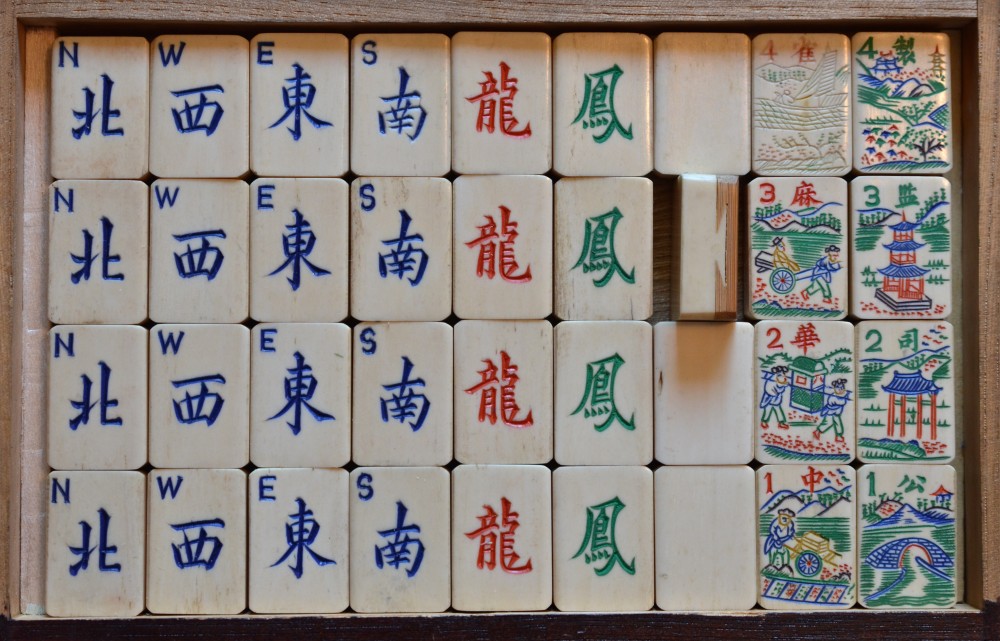 N 北 W 西 E 東 S 南 龍 鳳 4 雀 4 製
N 北 W 西 E 東 S 南 龍 鳳 3 麻 3 监
N 北 W 西 E 東 S 南 龍 鳳 2 華 2 司
N 北 W 西 E 東 S 南 龍 鳳 1 中 1 公